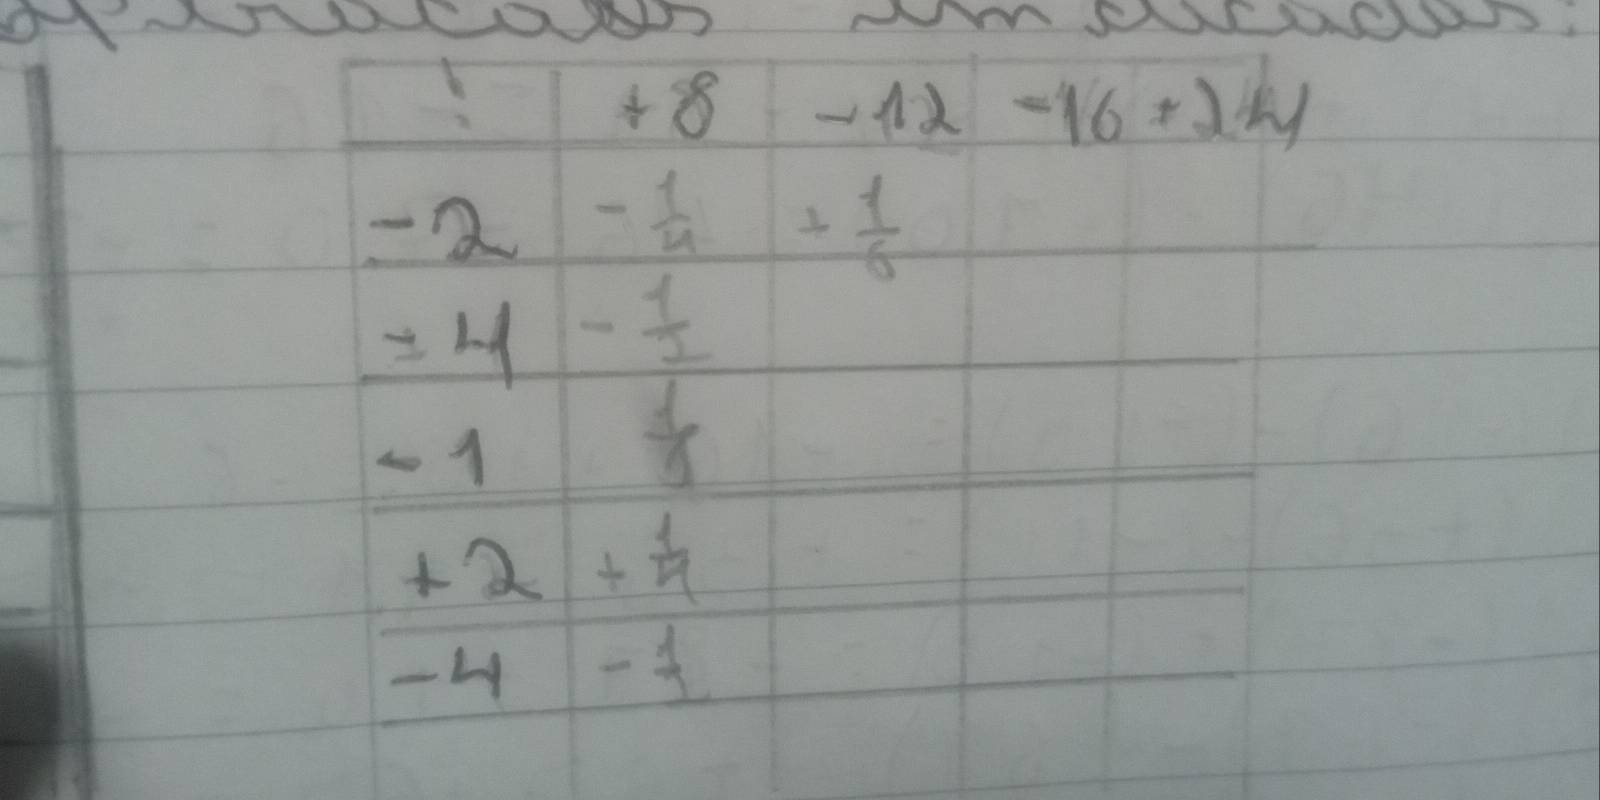 ÷ +8 -12 -16 +24
-2 -1/4 +1/6
-4 -1/2
-1 1/8
+2 +1/4
-4 -1/2